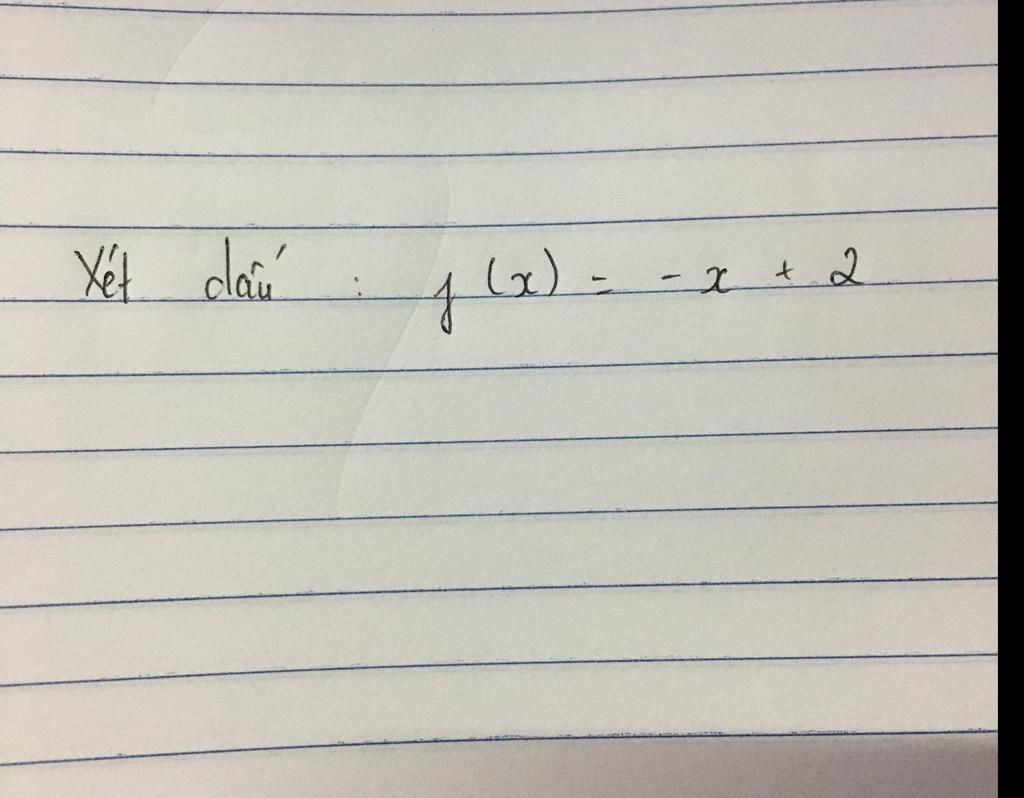 Xét dấu : f(x) = - x + 2